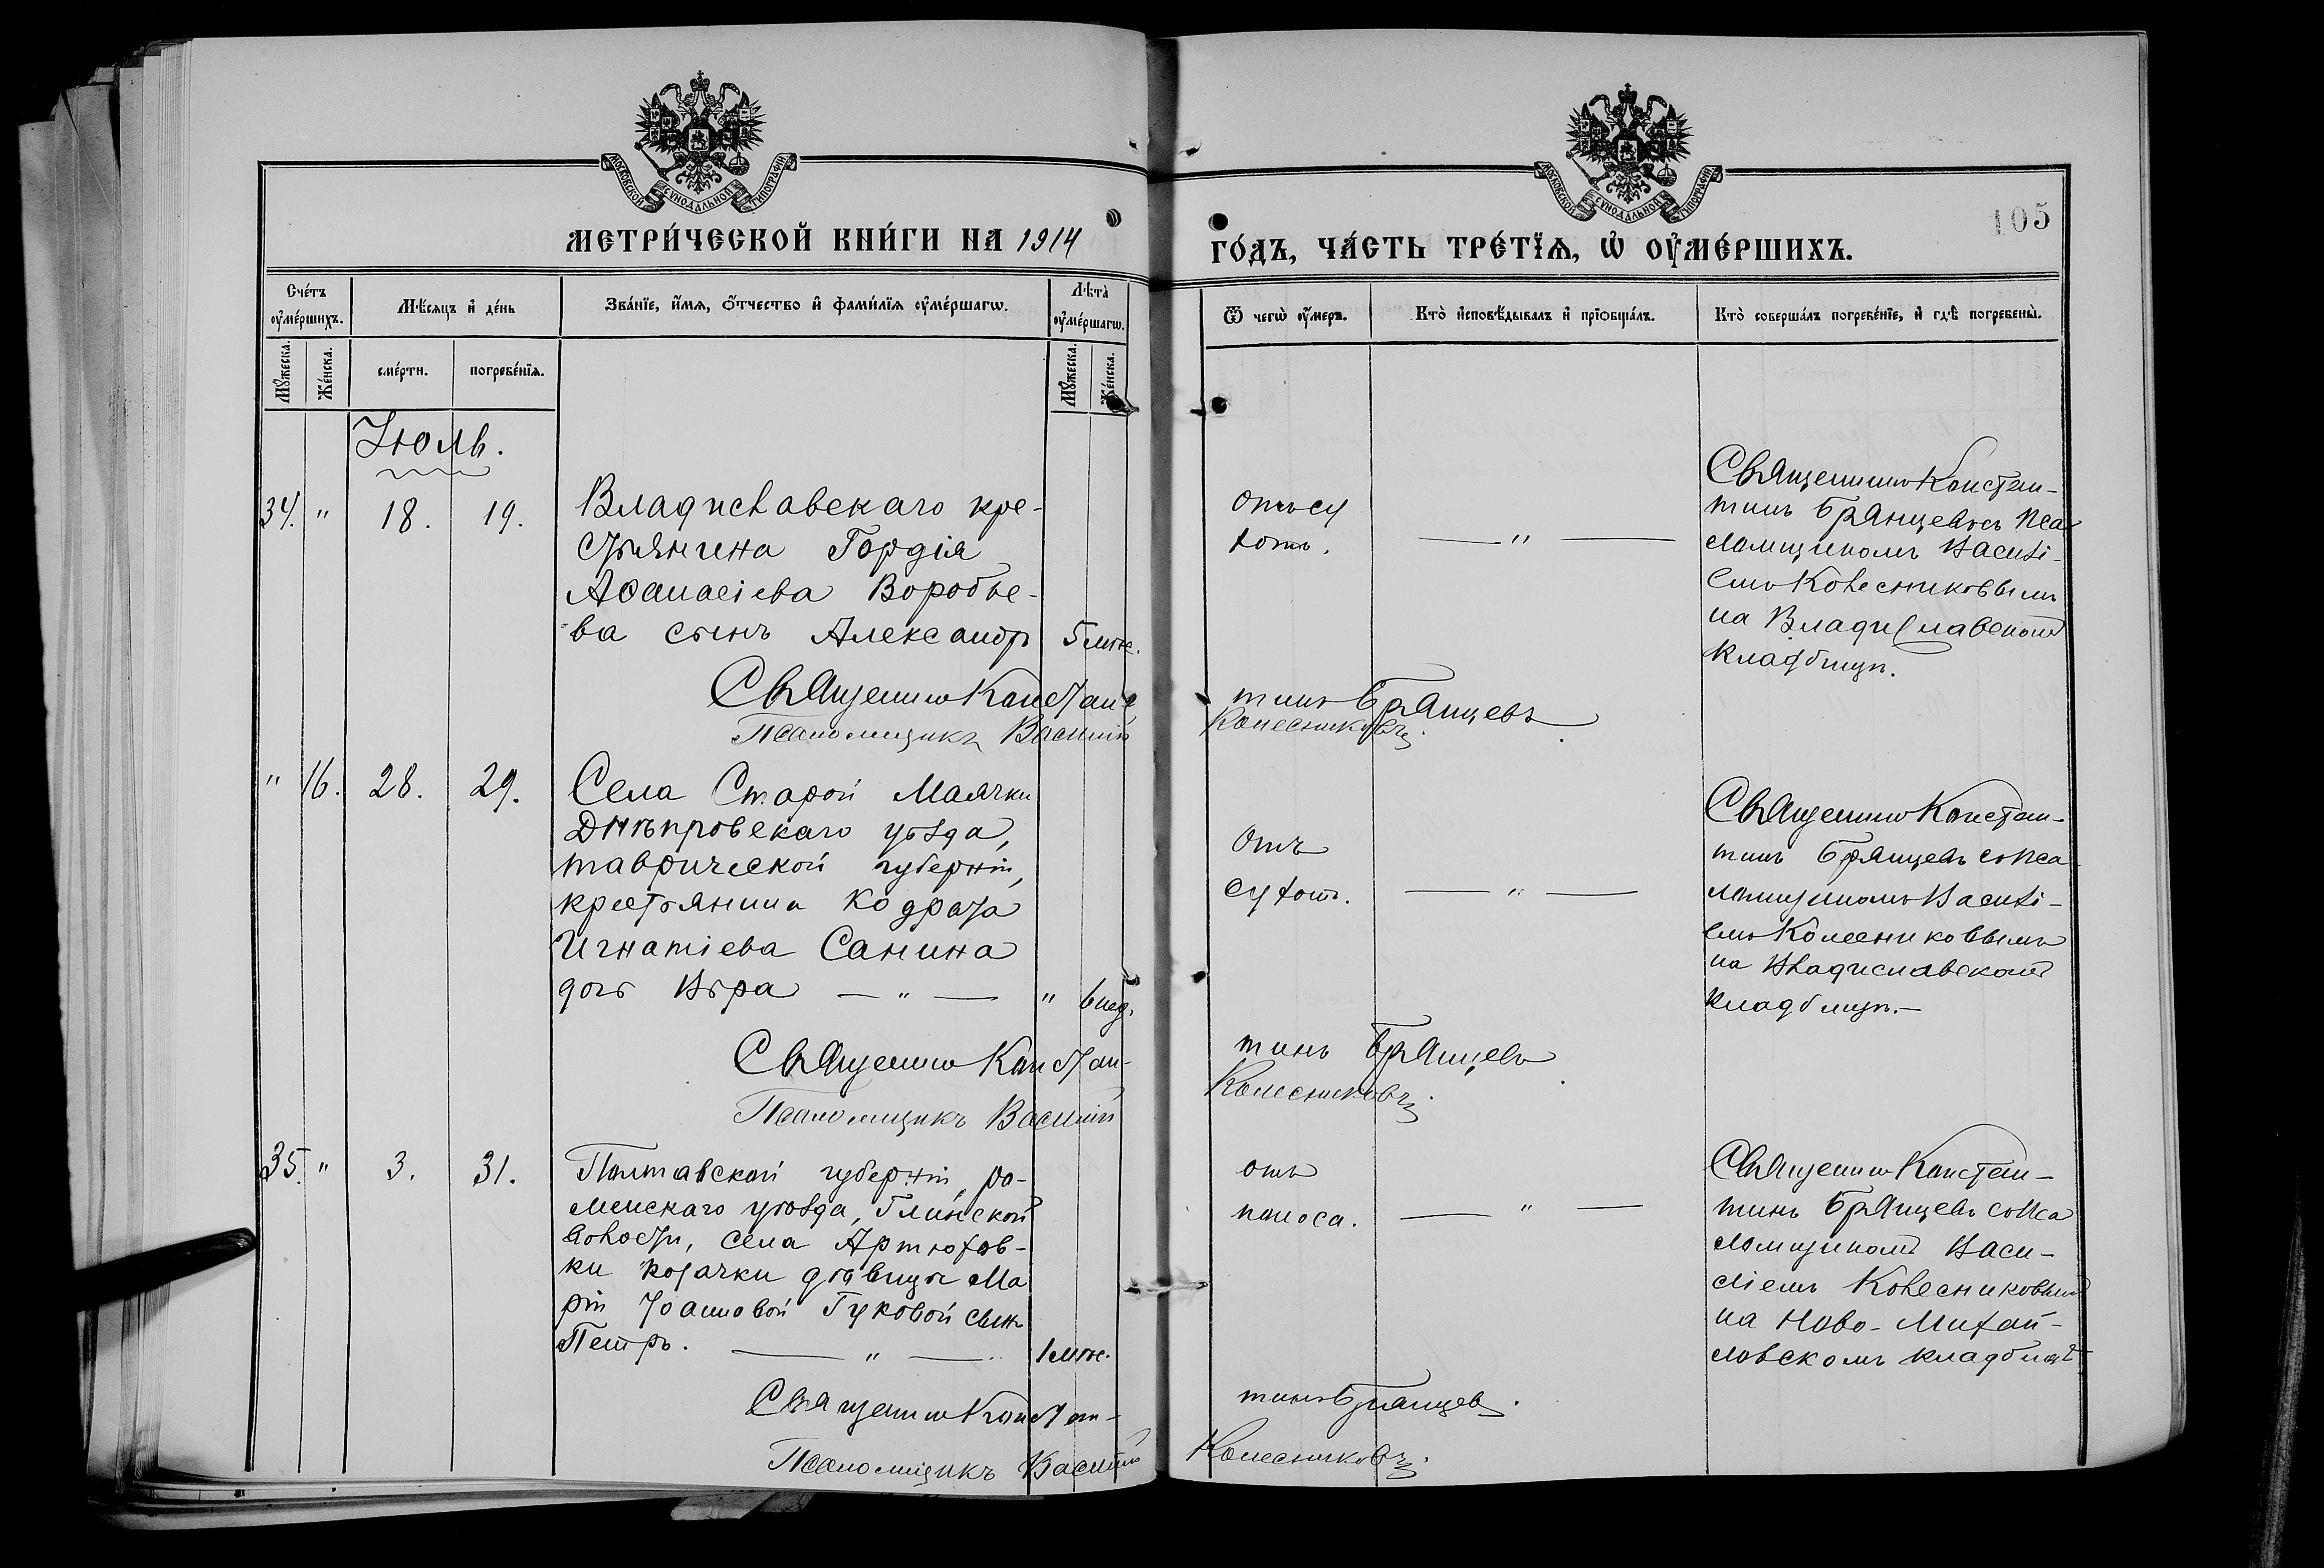 МОСКОВСКОЙ СѴНОДАЛЬНОЙ ТИПОГРАФІИ
МОСКОВСКОЙ СѴНОДАЛЬНОЙ ТИПОГРАФІИ
105
МЕТРИ́ЧЕСКОЙ КНИ́ГИ НА 1914
ГО́ДЪ, ЧА́СТЬ ТРЕ́ТЇѦ, Ѡ҆ ОУ҆МЕ́РШИХЪ.
Сче́тъ оу҆ме́ршихъ.
Мѣ́сяцъ и҆ де́нь
Зва́нїе, и҆́мѧ, ѻ҆́тчество и҆ фами́лїѧ оу҆ме́ршагѡ.
Лѣта̀ оу҆ме́ршагѡ.
Ѿ чегѡ̀ оу҆́меръ.
Кто̀ и҆сповѣ́дывалъ и҆ прїѡбща́лъ.
Кто̀ соверша́лъ погребе́нїе, и҆ гдѣ̀ погребены̀.
Мꙋ́жеска.
Же́нска.
сме́рти.
погребе́нїѧ.
Мꙋ́жеска.
Же́нска.
Июль.
34. " 18. 19.
Владиславскаго кре-
стьянина Гордія
Аѳанасіева Воробье-
ва сынъ Александръ 5 мѣс.
Отъ су
хотъ.
— " —
Священникъ Констан-
тинъ Брянцевъ съ пса
ломщикомъ Василі-
емъ Колесниковымъ
на Владиславскомъ
кладбищѣ.
Священникъ Констан
тинъ Брянцевъ
Псаломщикъ Василій
Колесниковъ.
" 16. 28. 29.
Села Старой Маячки
Днѣпровскаго уѣзда,
таврической губерніи,
крестьянина Кодрата
Игнатіева Санина
дочь Вѣра — " — " 6 нед.
Отъ
сухот.
— " —
Священникъ Констан-
тинъ Брянцевъ съ пса
ломщикомъ Василі-
емъ Колесниковымъ
на Владиславскомъ
кладбищѣ.—
Священникъ Констан-
тинъ Брянцевъ
Псаломщикъ Василій
Колесниковъ.
35. " 3. 31.
Полтавской губерніи, ро-
менскаго уѣзда, Глинской
волости, села Артюхов-
ки козачки дѣвицы Ма
ріи Іоанновой Гуковой сынъ
Петръ. — " — 1 мѣс.
отъ
поноса.
— " —
Священникъ Констан-
тинъ Брянцевъ съ пса
ломщикомъ Васи-
ліемъ Колесниковымъ
на Ново-Михай-
ловскомъ кладбищѣ
Священникъ Констан-
тинъ Брянцевъ.
Псаломщикъ Василій
Колесниковъ.